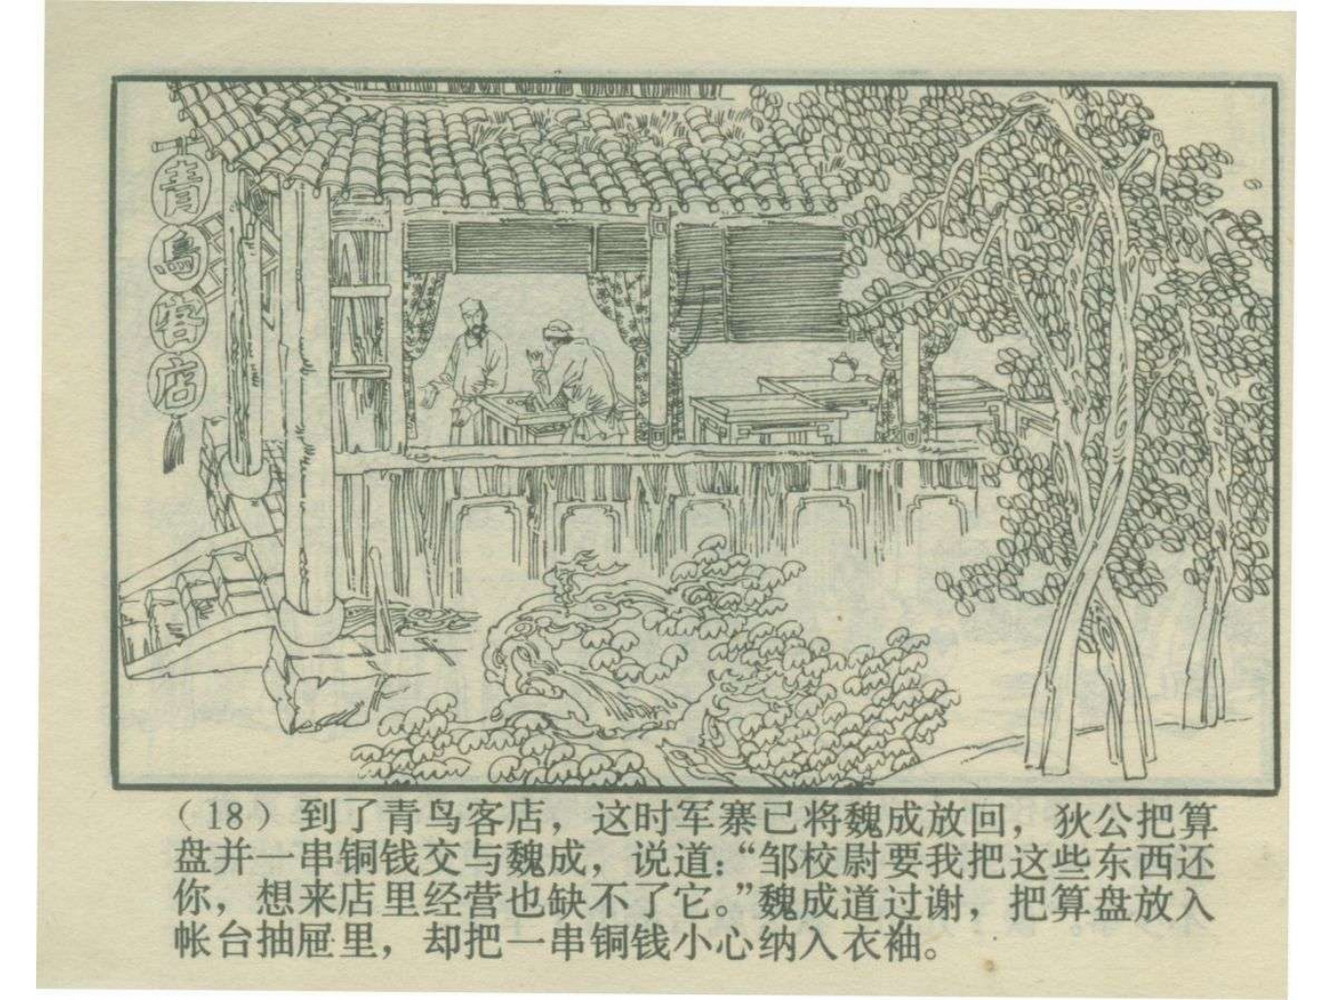 青鸟客店
（18）到了青鸟客店，这时军寨已将魏成放回，狄公把算
盘并一串铜钱交与魏成，说道：“邹校尉要我把这些东西还
你，想来店里经营也缺不了它。”魏成道过谢，把算盘放入
帐台抽屉里，却把一串铜钱小心纳入衣袖。